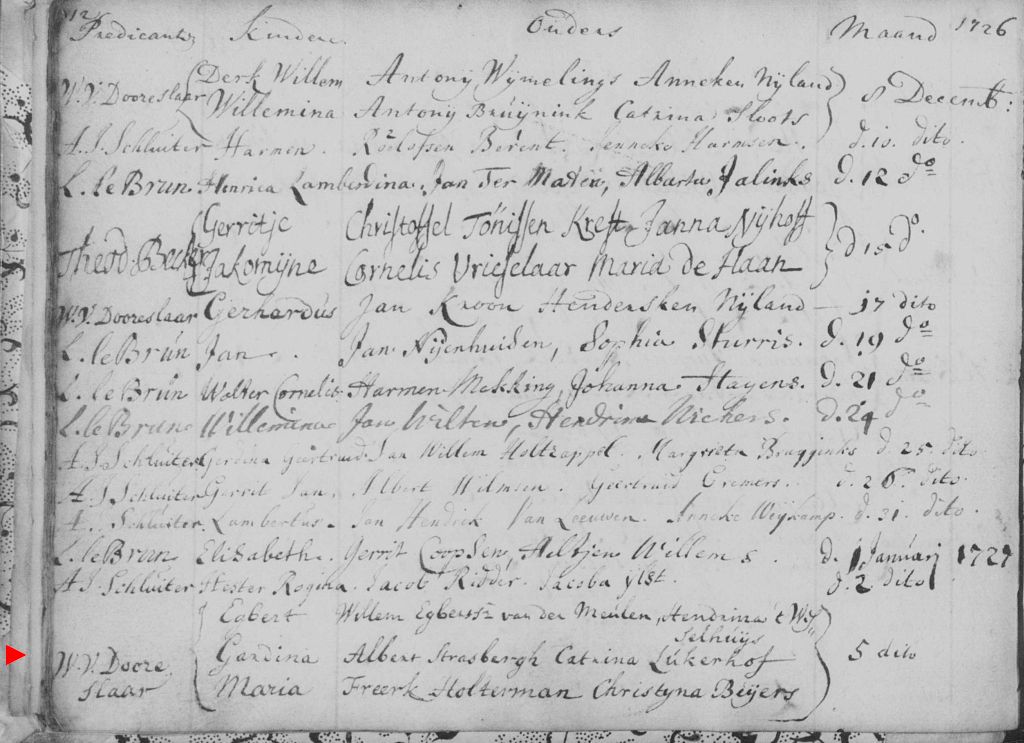 12
Predicants Kinderen Ouders Maand 1726
W. V. Dooreslaar Derk Willem Antonij Wijmelings Anneken Nijland 8 Decemb:
Willemina Antonij Bruijnink Catrina Sloots
A. J. Schluiter Harmen. Roelofsen Berent. Jenneke Harmsen. d. 10. dito.
L. le Brun Henrica Lamberdina, Jan Ter Maten, Alberta Jalinks d. 12 do
Gerritje Christoffel Tönissen Kreft Janna Nijhoff
Theod. Becker Jakomijne Cornelis Vrieselaar Maria de Haan d 15 do.
W. V. Dooreslaar Gerhardus Jan Kroon Hendersken Nijland — 17 dito
L. le Brun Jan. Jan Nijenhuisen, Sophia Sturris. d. 19 do
L. le Brun Walter Cornelis Harmen Mekking, Johanna Stayens. d. 21 do
L. le Brun Willemina Jan Wilten, Hendrina Wichers. d. 24 do
A. J. Schluiter Gerdina Geertruid. Jan Willem Holtkappel. Margrieta Bragginks d. 25. dito
A. J. Schluiter Gerrit Jan. Albert Wilmsen. Geertruid Cremers. d. 26. dito.
A. J. Schluiter Lambertus. Jan Hendrik Van Leeuwen. Anneke Weijkamp. d. 31. dito.
L. le Brun Elisabeth. Gerrit Coopsen, Heltjen Willems. d. 1 Januarj 1727
A. J. Schluiter Hester Regina. Jacob Ridder. Jacoba ijlst. d. 2 dito
Egbert Willem Egbertsz van der Meulen, Hendrina 't
Selhuijs
W. V. Doore Gardina Albert Strasbergh Catrina Lukerhof 5 dito
slaar Maria Freerk Holterman Christyna Beijers